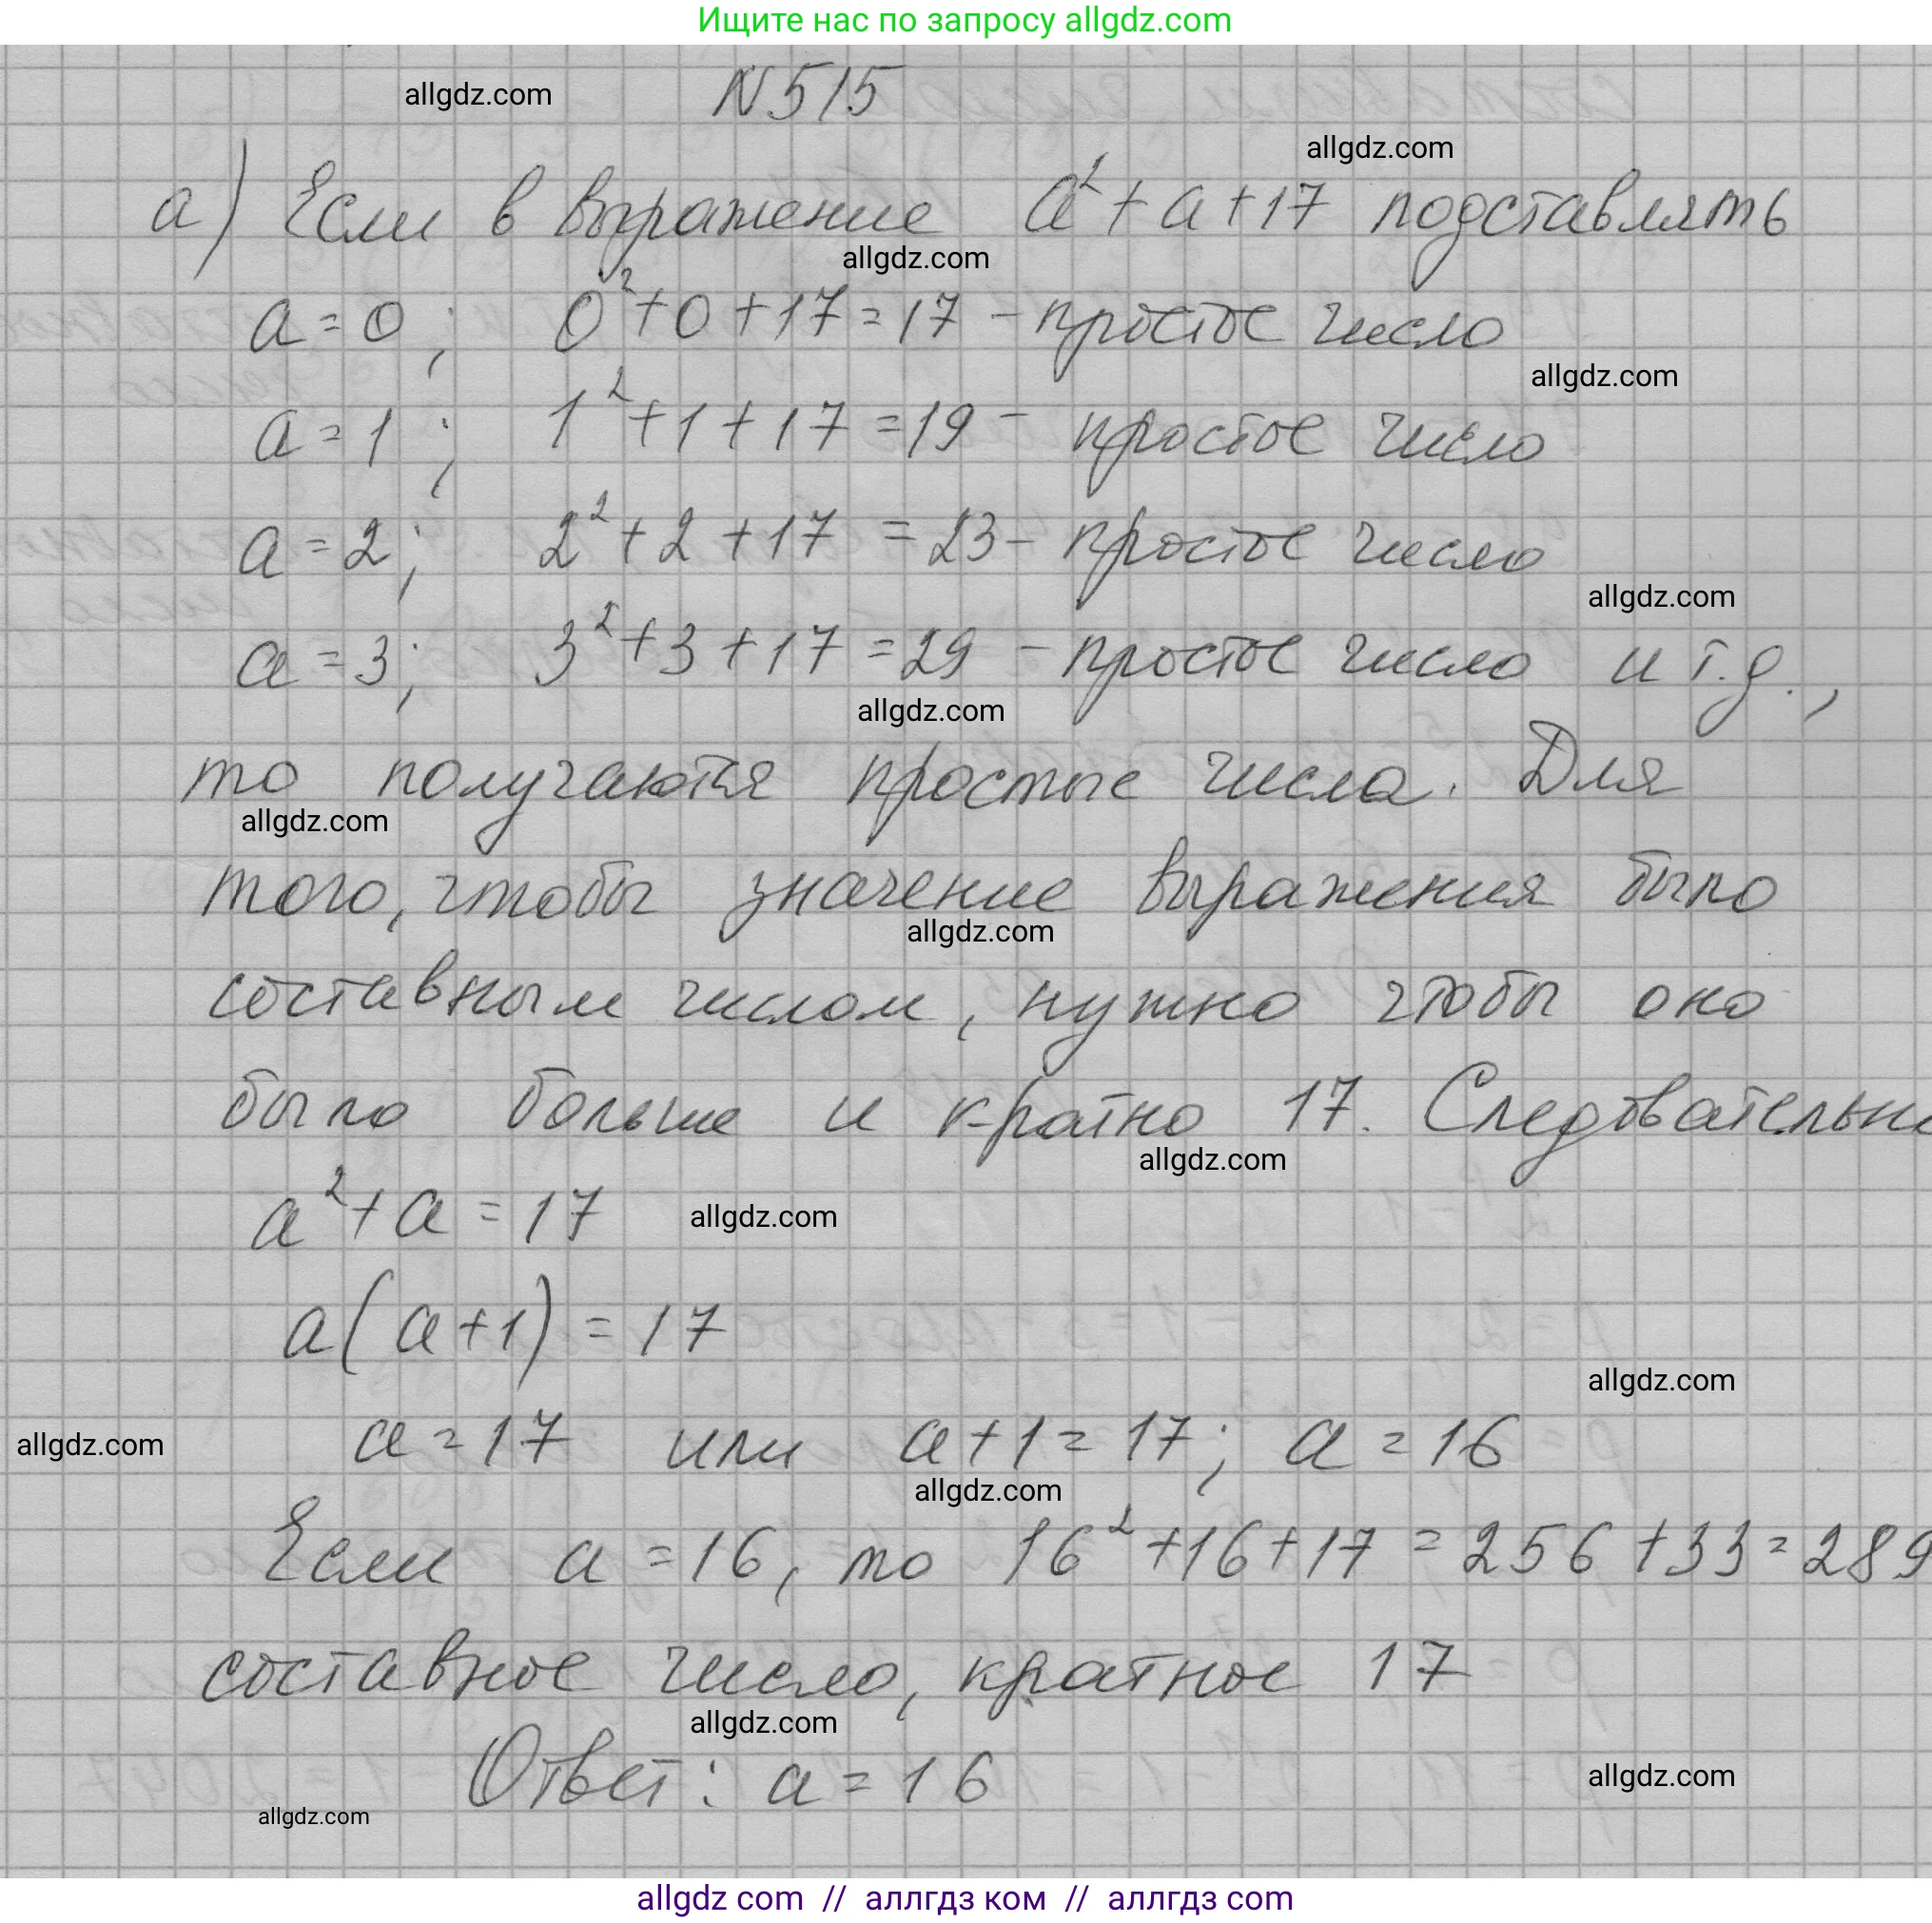 Ищите нас по запросу allgdz.com
allgdz.com
N 515
allgdz.com
а) Если в выражение a²+a+17 подставлять
allgdz.com
a=0; 0²+0+17=17 - простое число
allgdz.com
a=1; 1²+1+17=19 - простое число
a=2; 2²+2+17=23 - простое число
allgdz.com
a=3; 3²+3+17=29 - простое число и т.д.,
allgdz.com
то получаются простые числа. Для
allgdz.com
того, чтобы значение выражения было
allgdz.com
составным числом, нужно чтобы оно
было больше и кратно 17. Следовательн
allgdz.com
a²+a=17
allgdz.com
a(a+1)=17
allgdz.com
allgdz.com
a=17 или a+1=17; a=16
allgdz.com
Если a=16, то 16²+16+17=256+33=289
составное число, кратное 17
allgdz.com
Ответ: a=16
allgdz.com
allgdz.com
allgdz com // аллгдз ком // аллгдз com